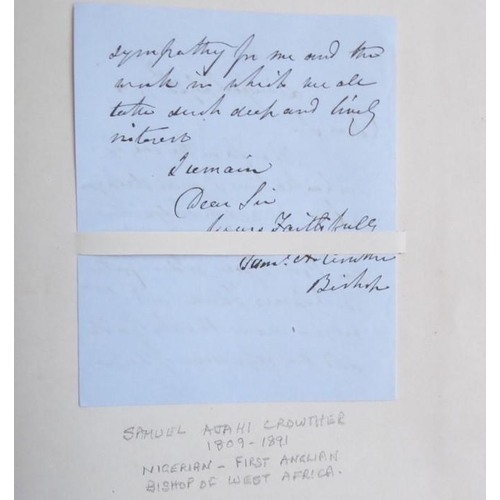 sympathy for me and the
work in which we all
take such deep and lively
interest
I remain
Dear Sir
Yours Faithfully
Saml. A. Crowther
Bishop
SAMUEL AJAHI CROWTHER
1809-1891
NIGERIAN - FIRST ANGLICAN
BISHOP OF WEST AFRICA.